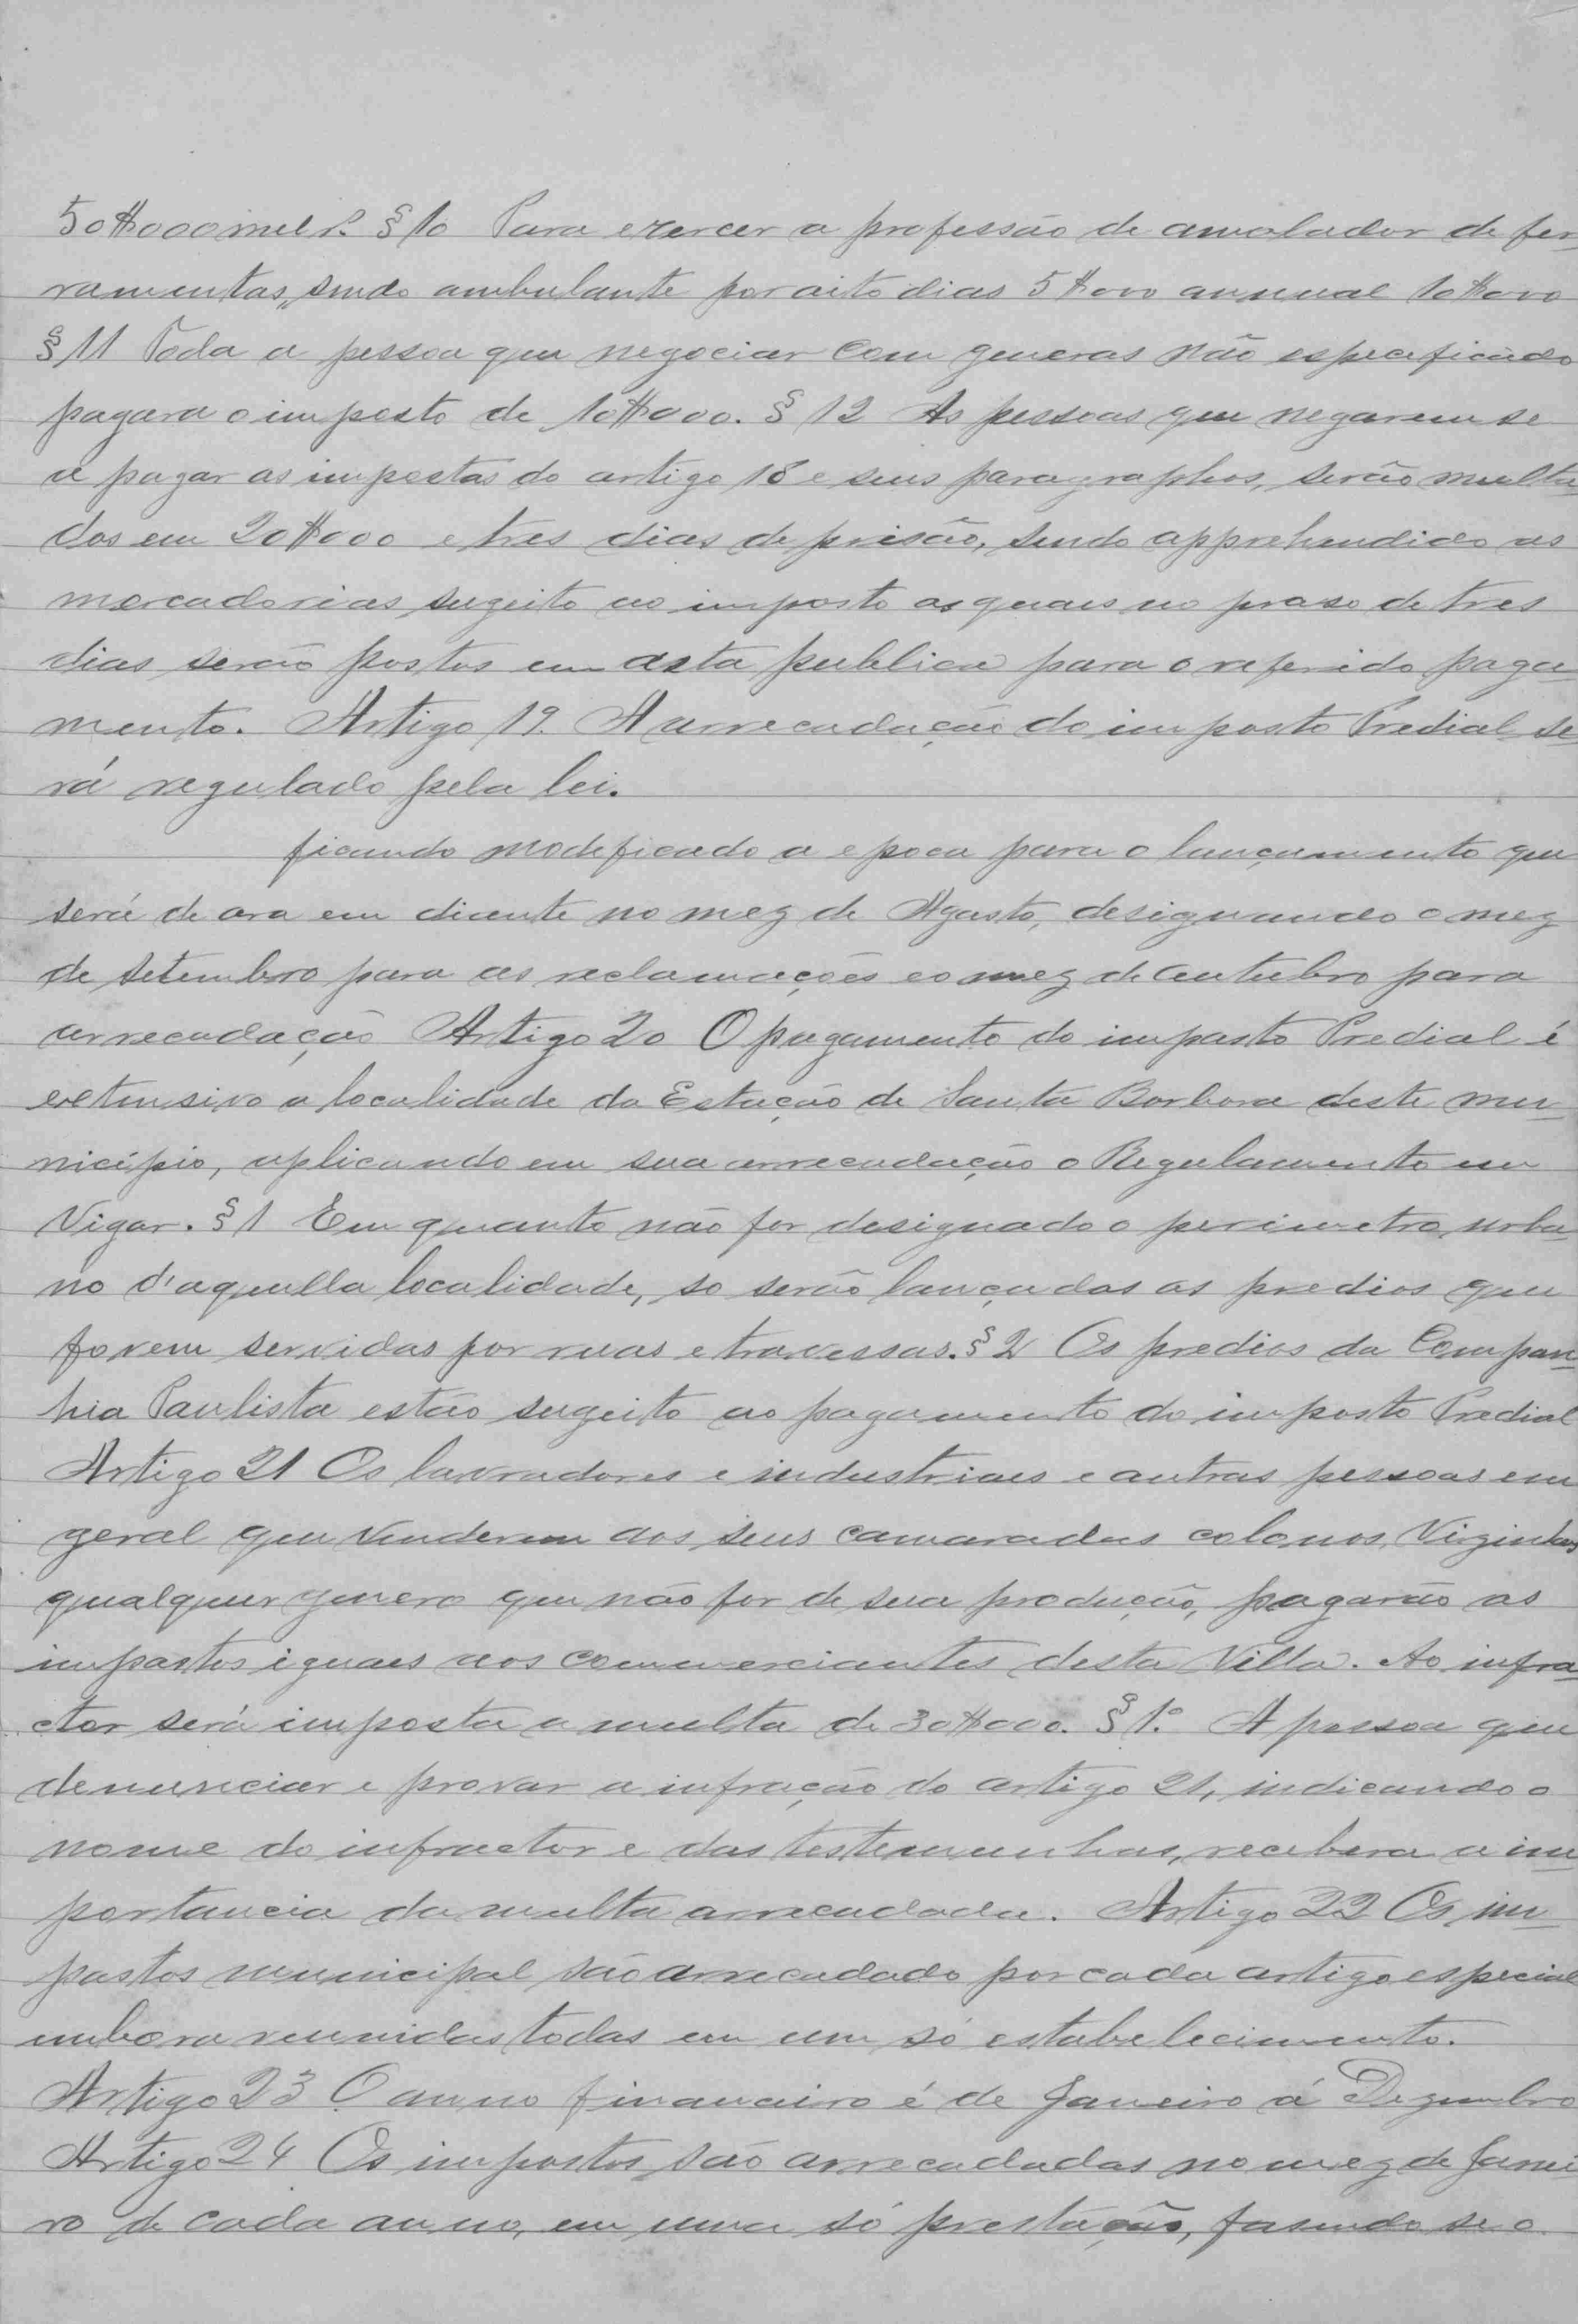 50$000 mil r.s § 10 Para exercer a profissão de amolador de fer
ramentas, sendo ambulante por oito dias 5$000 annual 10$000
§ 11 Toda a pessoa que negociar com generos não especificado
pagara o imposto de 10$000. § 12 As pessoas que negarem se
a pagar os impostos do artigo 18 e seus paragraphos, serão multa
dos em 20$000 e tres dias de prisão, sendo apprehendido as
mercadorias sugeito ao imposto as quaes no praso de tres
dias serão postos em asta publica para o referido paga
mento. Artigo 19. A arrecadação do imposto Predial se
rá regulado pela lei.
ficando modeficado a epoca para o lançamento que
será de ora em diante no mez de Agosto, designando o mez
de setembro para as reclamações e o mez de outubro para
arrecadação Artigo 20 O pagamento do imposto Predial é
extensivo a localidade da Estação de Santa Barbara deste mu
nicipio, aplicando em sua arrecadação o Regulamento em
Vigor. § 1 Em quanto não for designado o perimetro urba
no d'aquella localidade, so serão lançados os predios que
forem servidos por ruas e travessas. § 2 Os predios da Compan
hia Paulista estão sugeito ao pagamento do imposto Predial
Artigo 21 Os lavradores e industriaes e outras pessoas em
geral que venderem aos seus camaradas colonos, Vizinhos
qualquer genero que não for de sua produção, pagarão os
impostos iguaes aos commerciantes desta Villa. Ao infra
ctor será imposta a multa de 30$000. § 1.º A pessoa que
denunciar e provar a infração do artigo 21, indicando o
nome do infractor e das testemunhas, recebera a im
portancia da multa arrecadada. Artigo 22 Os im
postos municipal são arrecadado por cada artigo especial
embora reunidos todos em um só estabelecimento.
Artigo 23 O anno financeiro é de Janeiro á Dezembro
Artigo 24 Os impostos são arrecadados no mez de Janei
ro de cada anno, em uma só prestação, fasendo se o